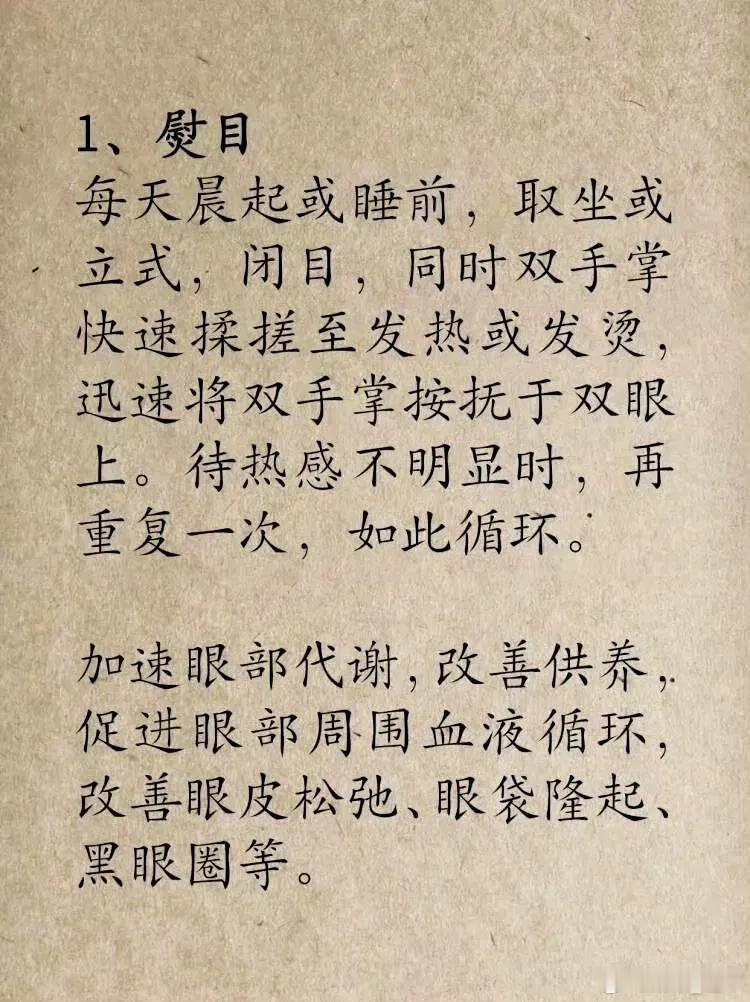 1、熨目
每天晨起或睡前，取坐或
立式，闭目，同时双手掌
快速揉搓至发热或发烫，
迅速将双手掌按抚于双眼
上。待热感不明显时，再
重复一次，如此循环。
加速眼部代谢，改善供养，
促进眼部周围血液循环，
改善眼皮松弛、眼袋隆起、
黑眼圈等。